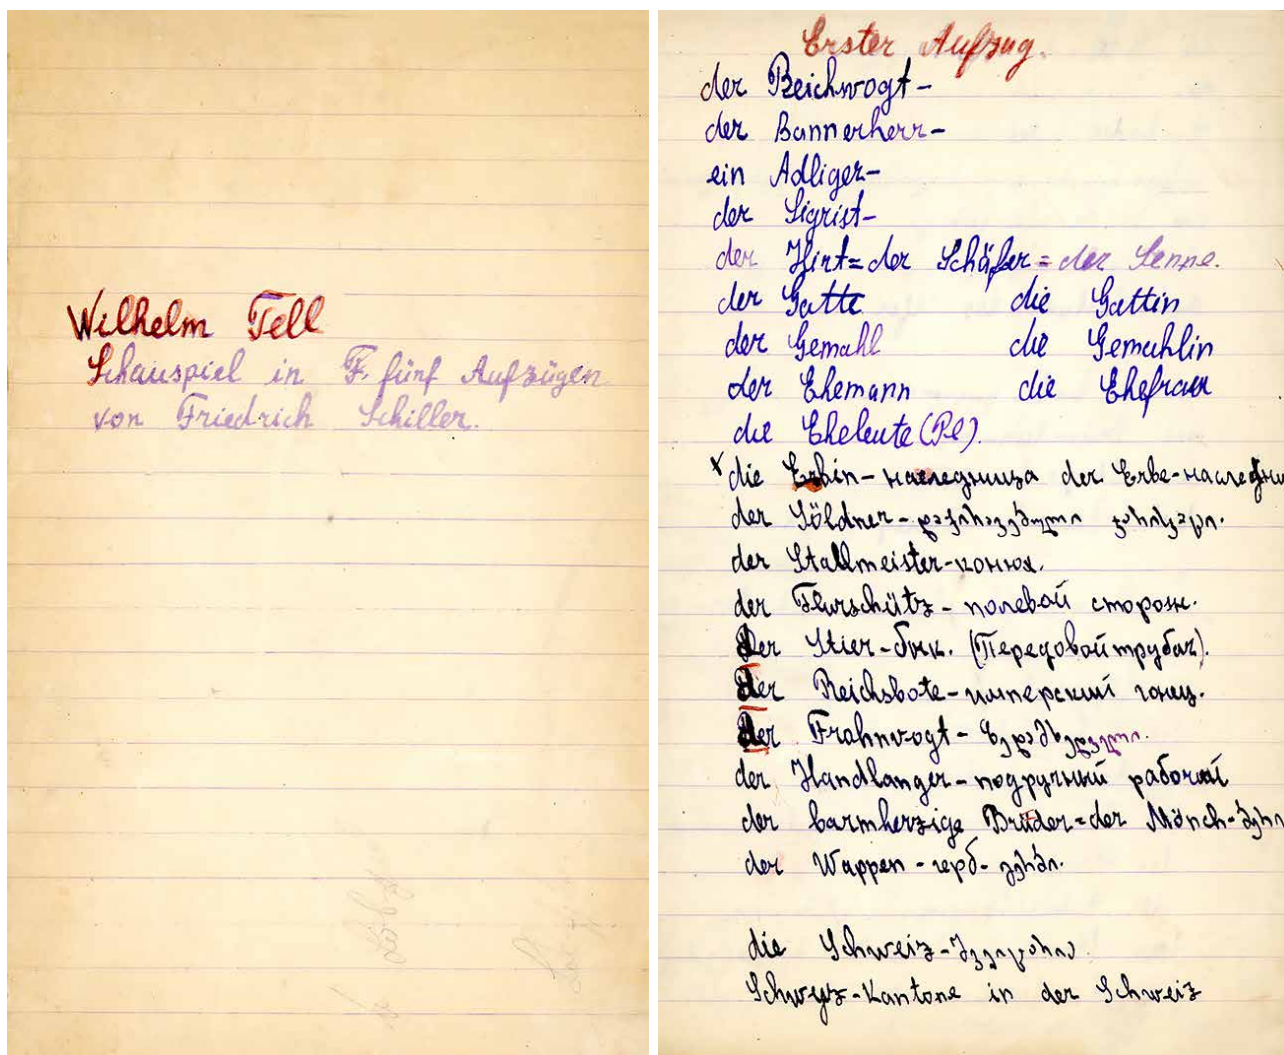 Wilhelm Tell
Schauspiel in F. fünf Aufzügen
von Friedrich Schiller.
Erster Aufzug.
der Reichvogt-
der Bannerherr-
ein Adliger-
der Sigrist-
der Hirt=der Schäfer=der Senne.
der Gatte die Gattin
der Gemahl die Gemahlin
der Ehemann die Ehefrau
die Eheleute (Pl).
x die Erbin-наследница der Erbe-наследни
der Söldner-დაქირავებული ჯარისკაცი.
der Stallmeister-конюх.
der Flurschütz-полевой сторож.
Der Stier-бык. (Передовой трубач).
Der Reichsbote-имперский гонец.
Der Frohnvogt-ზედამხედველი.
der Handlanger-подручный рабочий
der barmherzige Bruder=der Mönch-ბერი
der Wappen-герб-გერბი.
die Schweiz-შვეიცარია
Schwyz-Kantone in der Schweiz